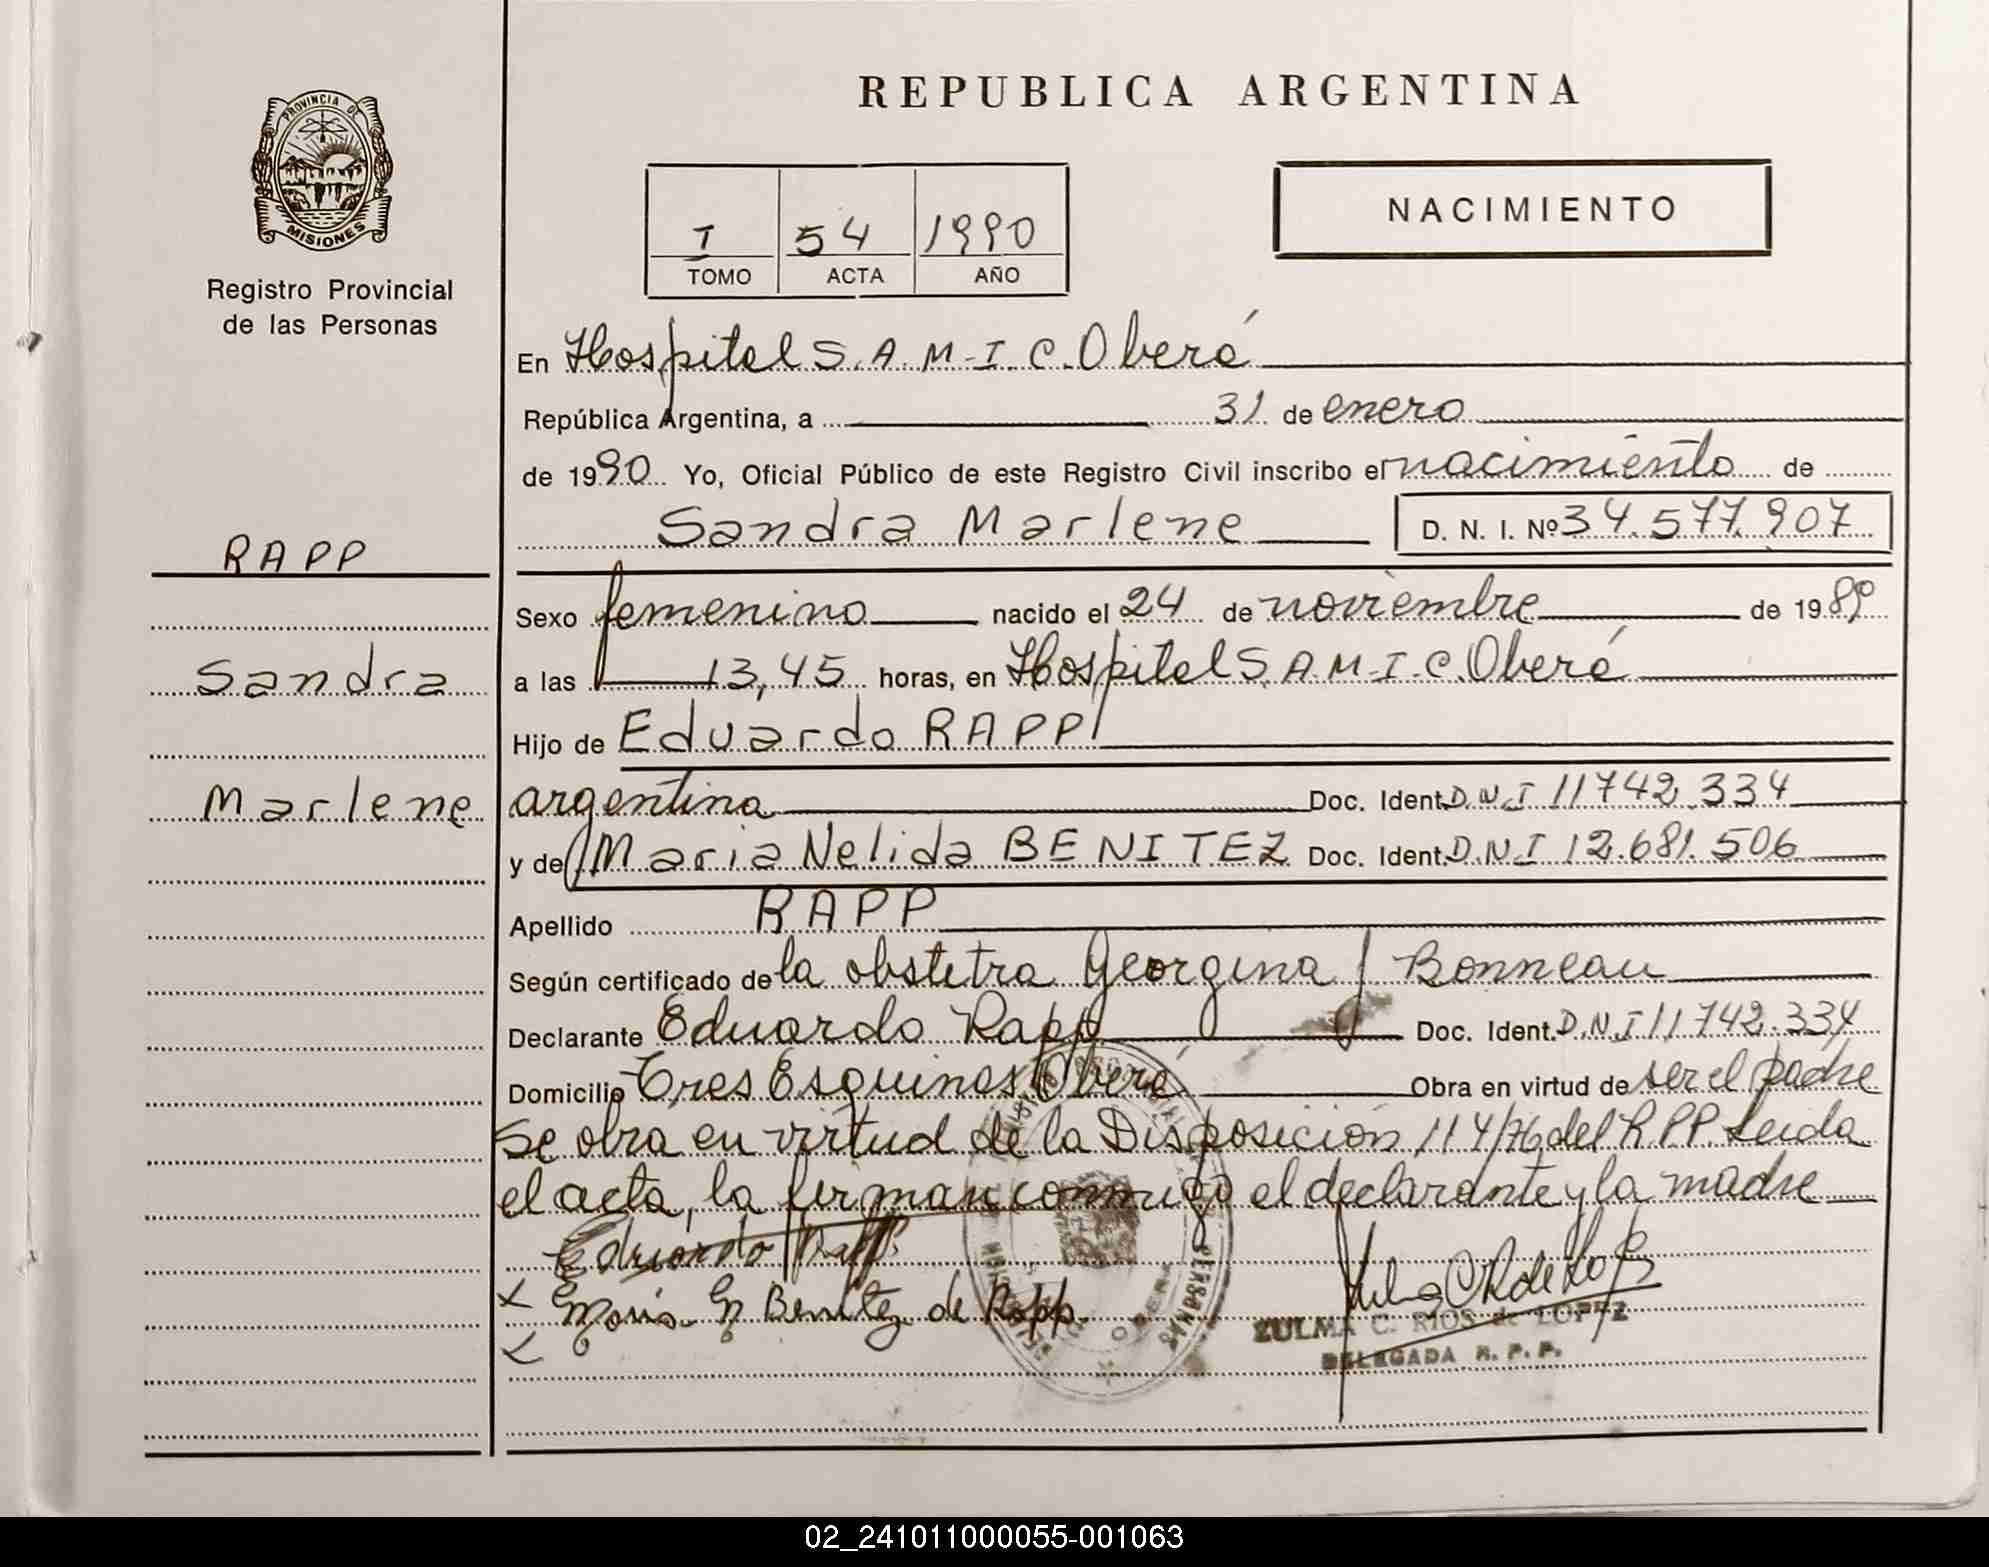 REPUBLICA ARGENTINA
PROVINCIA DE
MISIONES
Registro Provincial
de las Personas
I 54 1990
TOMO ACTA AÑO
NACIMIENTO
En Hospital S.A.M-I.C. Oberá
República Argentina, a 31 de enero
de 1990 Yo, Oficial Público de este Registro Civil inscribo el nacimiento de
Sandra Marlene D. N. I. Nº 34.577.907
RAPP
Sandra
Marlene
Sexo femenino nacido el 24 de noviembre de 1989
a las 13,45 horas, en Hospital S.A.M-I.C. Oberá
Hijo de Eduardo RAPP
argentina Doc. Ident. D.N.I 11742.334
y de Maria Nelida BENITEZ Doc. Ident. D.N.I 12.681.506
Apellido RAPP
Según certificado de la obstetra Georgina J Bonneau
Declarante Eduardo Rapp Doc. Ident. D.N.I 11742.334
Domicilio Tres Esquinas Oberá Obra en virtud de ser el padre
Se obra en virtud de la Disposición 114/76 del R.P.P. Leida
el acta, la firman conmigo el declarante y la madre
Eduardo Rapp
Maria N Benitez de Rapp.
ZULMA C. RIOS de LOPEZ
DELEGADA R. P. P.
PERSONAS
02_241011000055-001063